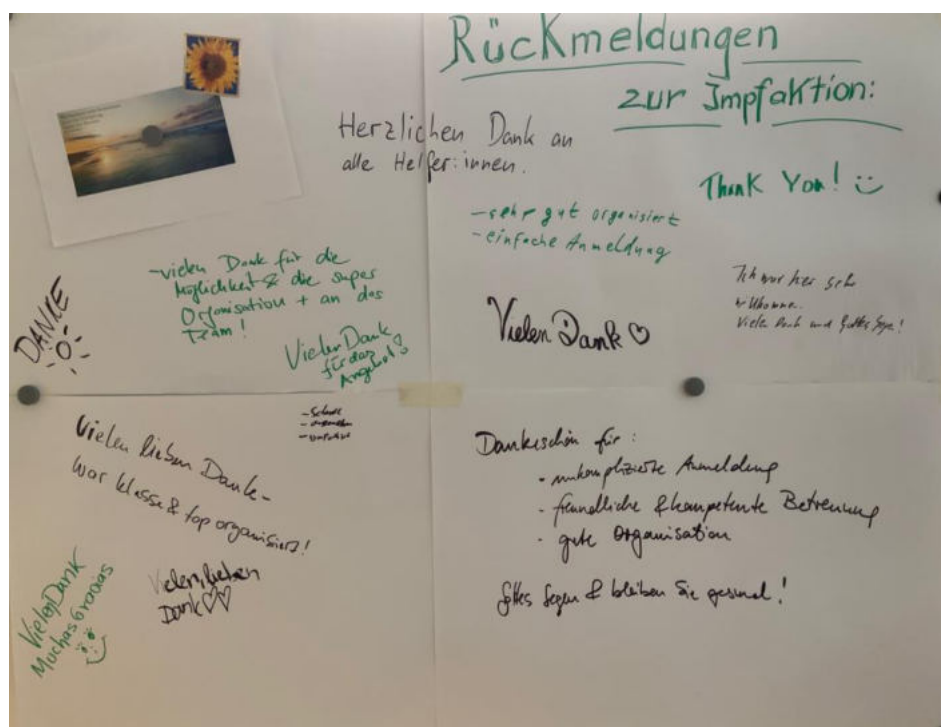 Rückmeldungen
zur Impfaktion:
Herzlichen Dank an
alle Helfer:innen.
Thank You!
- sehr gut organisiert
- einfache Anmeldung
- vielen Dank für die
Möglichkeit & die super
Organisation + an das
Team!
DANKE
Vielen Dank
für das
Angebot!
Vielen Dank
Ich war hier sehr
willkommen.
Vielen Dank und Gottes Segen!
Vielen lieben Dank -
war klasse & top organisiert!
Dankeschön für:
- unkomplizierte Anmeldung
- freundliche & kompetente Betreuung
- gute Organisation
Gottes Segen & bleiben Sie gesund!
Vielen lieben
Dank
Vielen Dank
Muchas Gracias